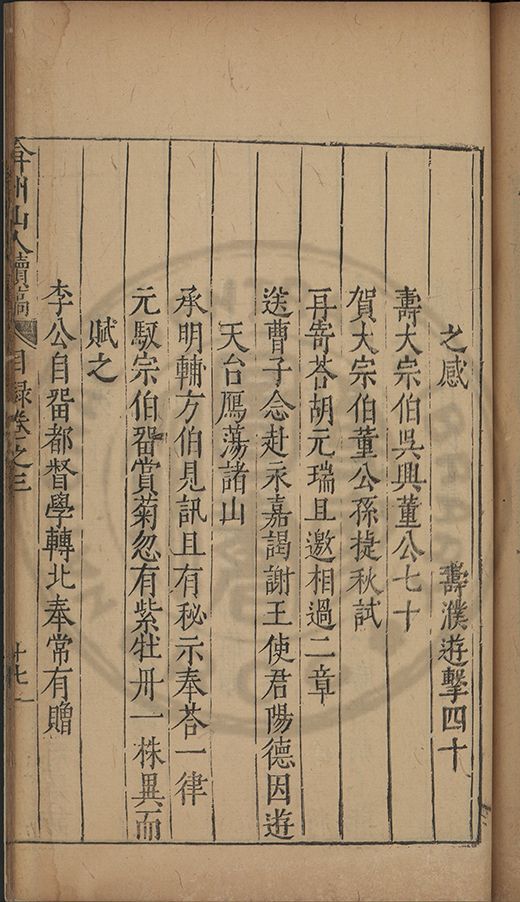 之感　壽濮遊擊四十
壽大宗伯吳興董公七十
賀大宗伯董公孫捷秋試
再寄荅胡元瑞且邀相過二章
送曹子念赴永嘉謁謝王使君陽德因遊
天台鴈蕩諸山
承明輔方伯見訊且有秘示奉荅一律
元馭宗伯畱賞菊忽有紫牡丹一株異而
賦之
李公自畱都督學轉北奉常有贈
弇州山人續稿　目録卷之三　廿七